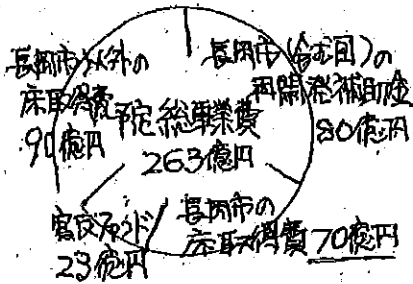 長岡市以外の
床取得費
90億円
長岡市(含む国)の
再開発補助金
80億円
予定総事業費
263億円
官民ファンド
23億円
長岡市の
床取得費 70億円